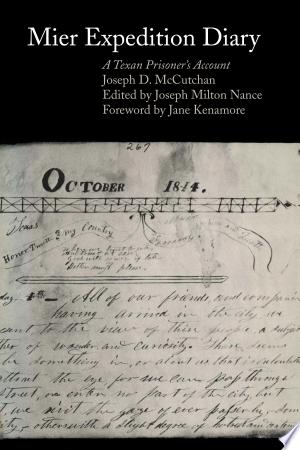 Mier Expedition Diary
A Texan Prisoner's Account
Joseph D. McCutchan
Edited by Joseph Milton Nance
Foreword by Jane Kenamore
267
OCTOBER 1844.
Texas
Honor Trust & my Country
day 4th All of our friends and companions
having arrived in the city we
to the view of these people, a subject
of wonder and curiosity. There seems
be something in, or about us that
the eye, for we can pass through
street, or enter no part of the city, but
we meet the gaze of ever passer by, down
others with a slight degree of